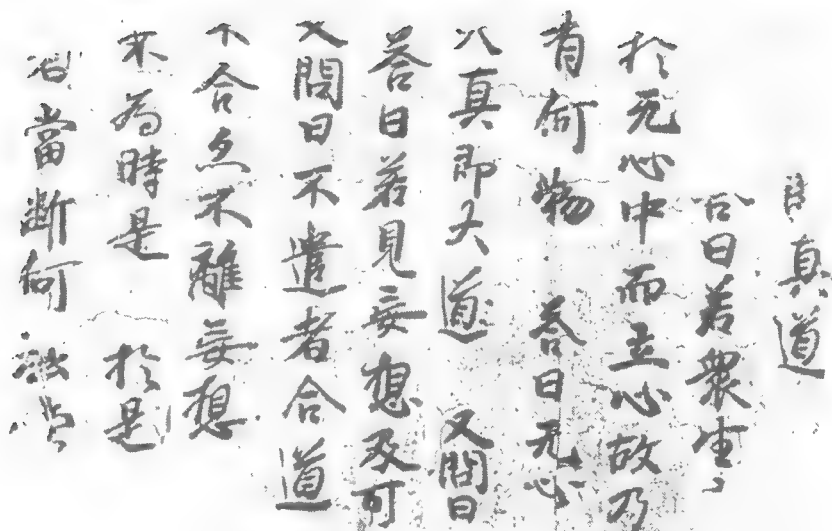 真道
曰若衆生
於无心中而立心故乃
有何物 答曰无心
真即大道 又問曰
答曰若見妄想及可
又問曰不遣者合道
不合亦不離妄想
不為時是 於是
當断何